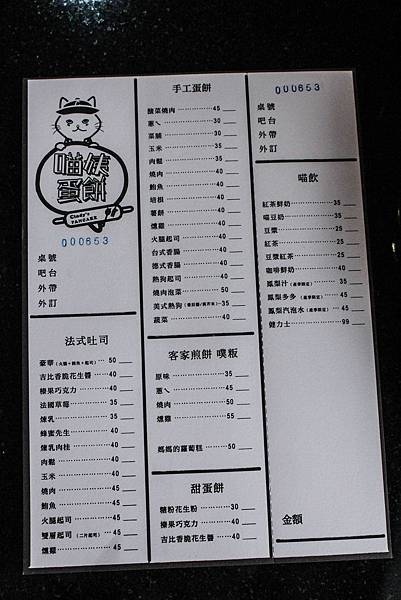 喵姨
蛋餅
Cindy's
PANCAKE
000653
桌號
吧台
外帶
外訂
法式吐司
豪華(火腿+鮪魚+起司) 50
吉比香脆花生醬 40
榛果巧克力 40
法國草莓 35
煉乳 35
蜂蜜先生 40
煉乳肉桂 40
肉鬆 40
玉米 40
燒肉 45
鮪魚 45
火腿起司 45
雙層起司(二片起司) 45
燻雞 45
手工蛋餅
酸菜燒肉 45
蔥ㄟ 30
菜脯 30
玉米 35
肉鬆 35
燒肉 40
鮪魚 40
培根 40
薯餅 40
燻雞 40
火腿起司 40
台式香腸 40
德式香腸 40
熱狗起司 40
燒肉泡菜 50
美式熱狗 35
蔬菜 40
客家煎餅 粄粄
原味 35
蔥ㄟ 35
燒肉 50
燻雞 55
媽媽的蘿蔔糕 50
甜蛋餅
糖粉花生粉 30
榛果巧克力 40
吉比香脆花生醬 40
000653
桌號
吧台
外帶
外訂
喵飲
紅茶鮮奶 35
喵豆奶 35
豆漿 25
紅茶 25
豆漿紅茶 25
咖啡鮮奶 40
鳳梨汁(產季限定) 35
鳳梨多多(產季限定) 45
鳳梨汽泡水(產季限定) 45
健力士 99
金額